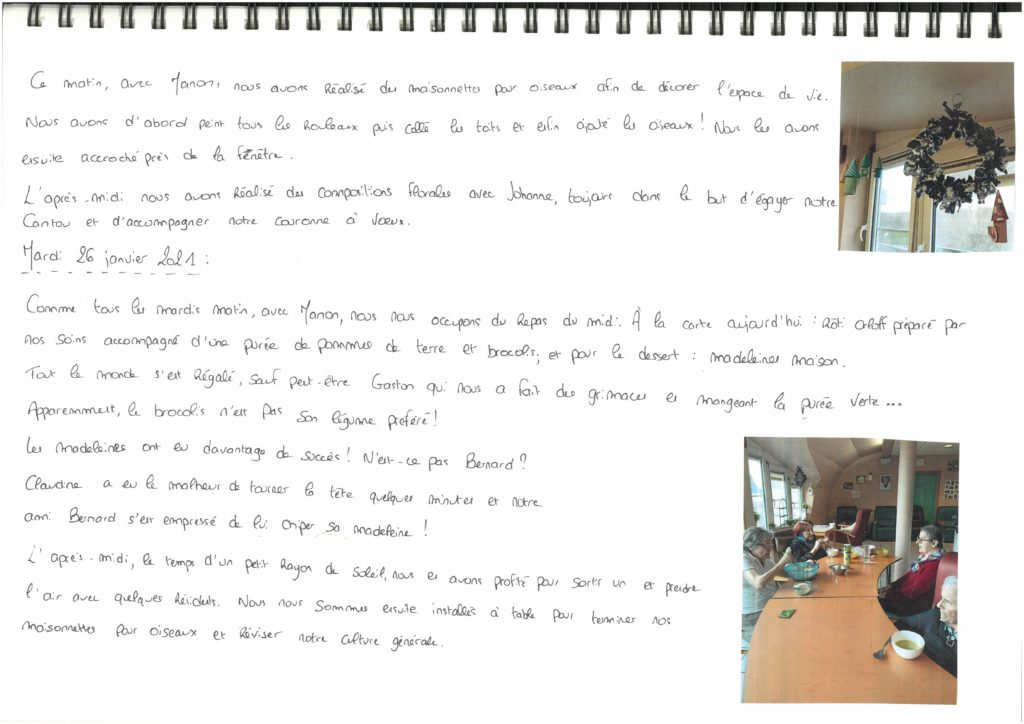 Ce matin, avec Manon, nous avons réalisé des maisonnettes pour oiseaux afin de décorer l'espace de vie.
Nous avons d'abord peint tous les rouleaux puis collé les toits et enfin ajouté les oiseaux ! Nous les avons
ensuite accroché près de la fenêtre.
L'après-midi nous avons réalisé des compositions florales avec Johanne, toujours dans le but d'égayer notre
Cantou et d'accompagner notre couronne à vœux.
Mardi 26 janvier 2021 :
Comme tous les mardis matin, avec Manon, nous nous occupons du repas du midi. À la carte aujourd'hui : Rôti Orloff préparé par
nos soins accompagné d'une purée de pommes de terre et brocolis, et pour le dessert : madeleines maison.
Tout le monde s'est régalé, sauf peut-être Gaston qui nous a fait des grimaces en mangeant la purée verte...
Apparemment, le brocolis n'est pas son légume préféré !
Les madeleines ont eu davantage de succès ! N'est-ce pas Bernard ?
Claudine a eu le malheur de tourner la tête quelques minutes et notre
ami Bernard s'est empressé de lui chiper sa madeleine !
L'après-midi, le temps d'un petit rayon de soleil, nous en avons profité pour sortir un et prendre
l'air avec quelques résidents. Nous nous sommes ensuite installés à table pour terminer nos
maisonnettes pour oiseaux et réviser notre culture générale.